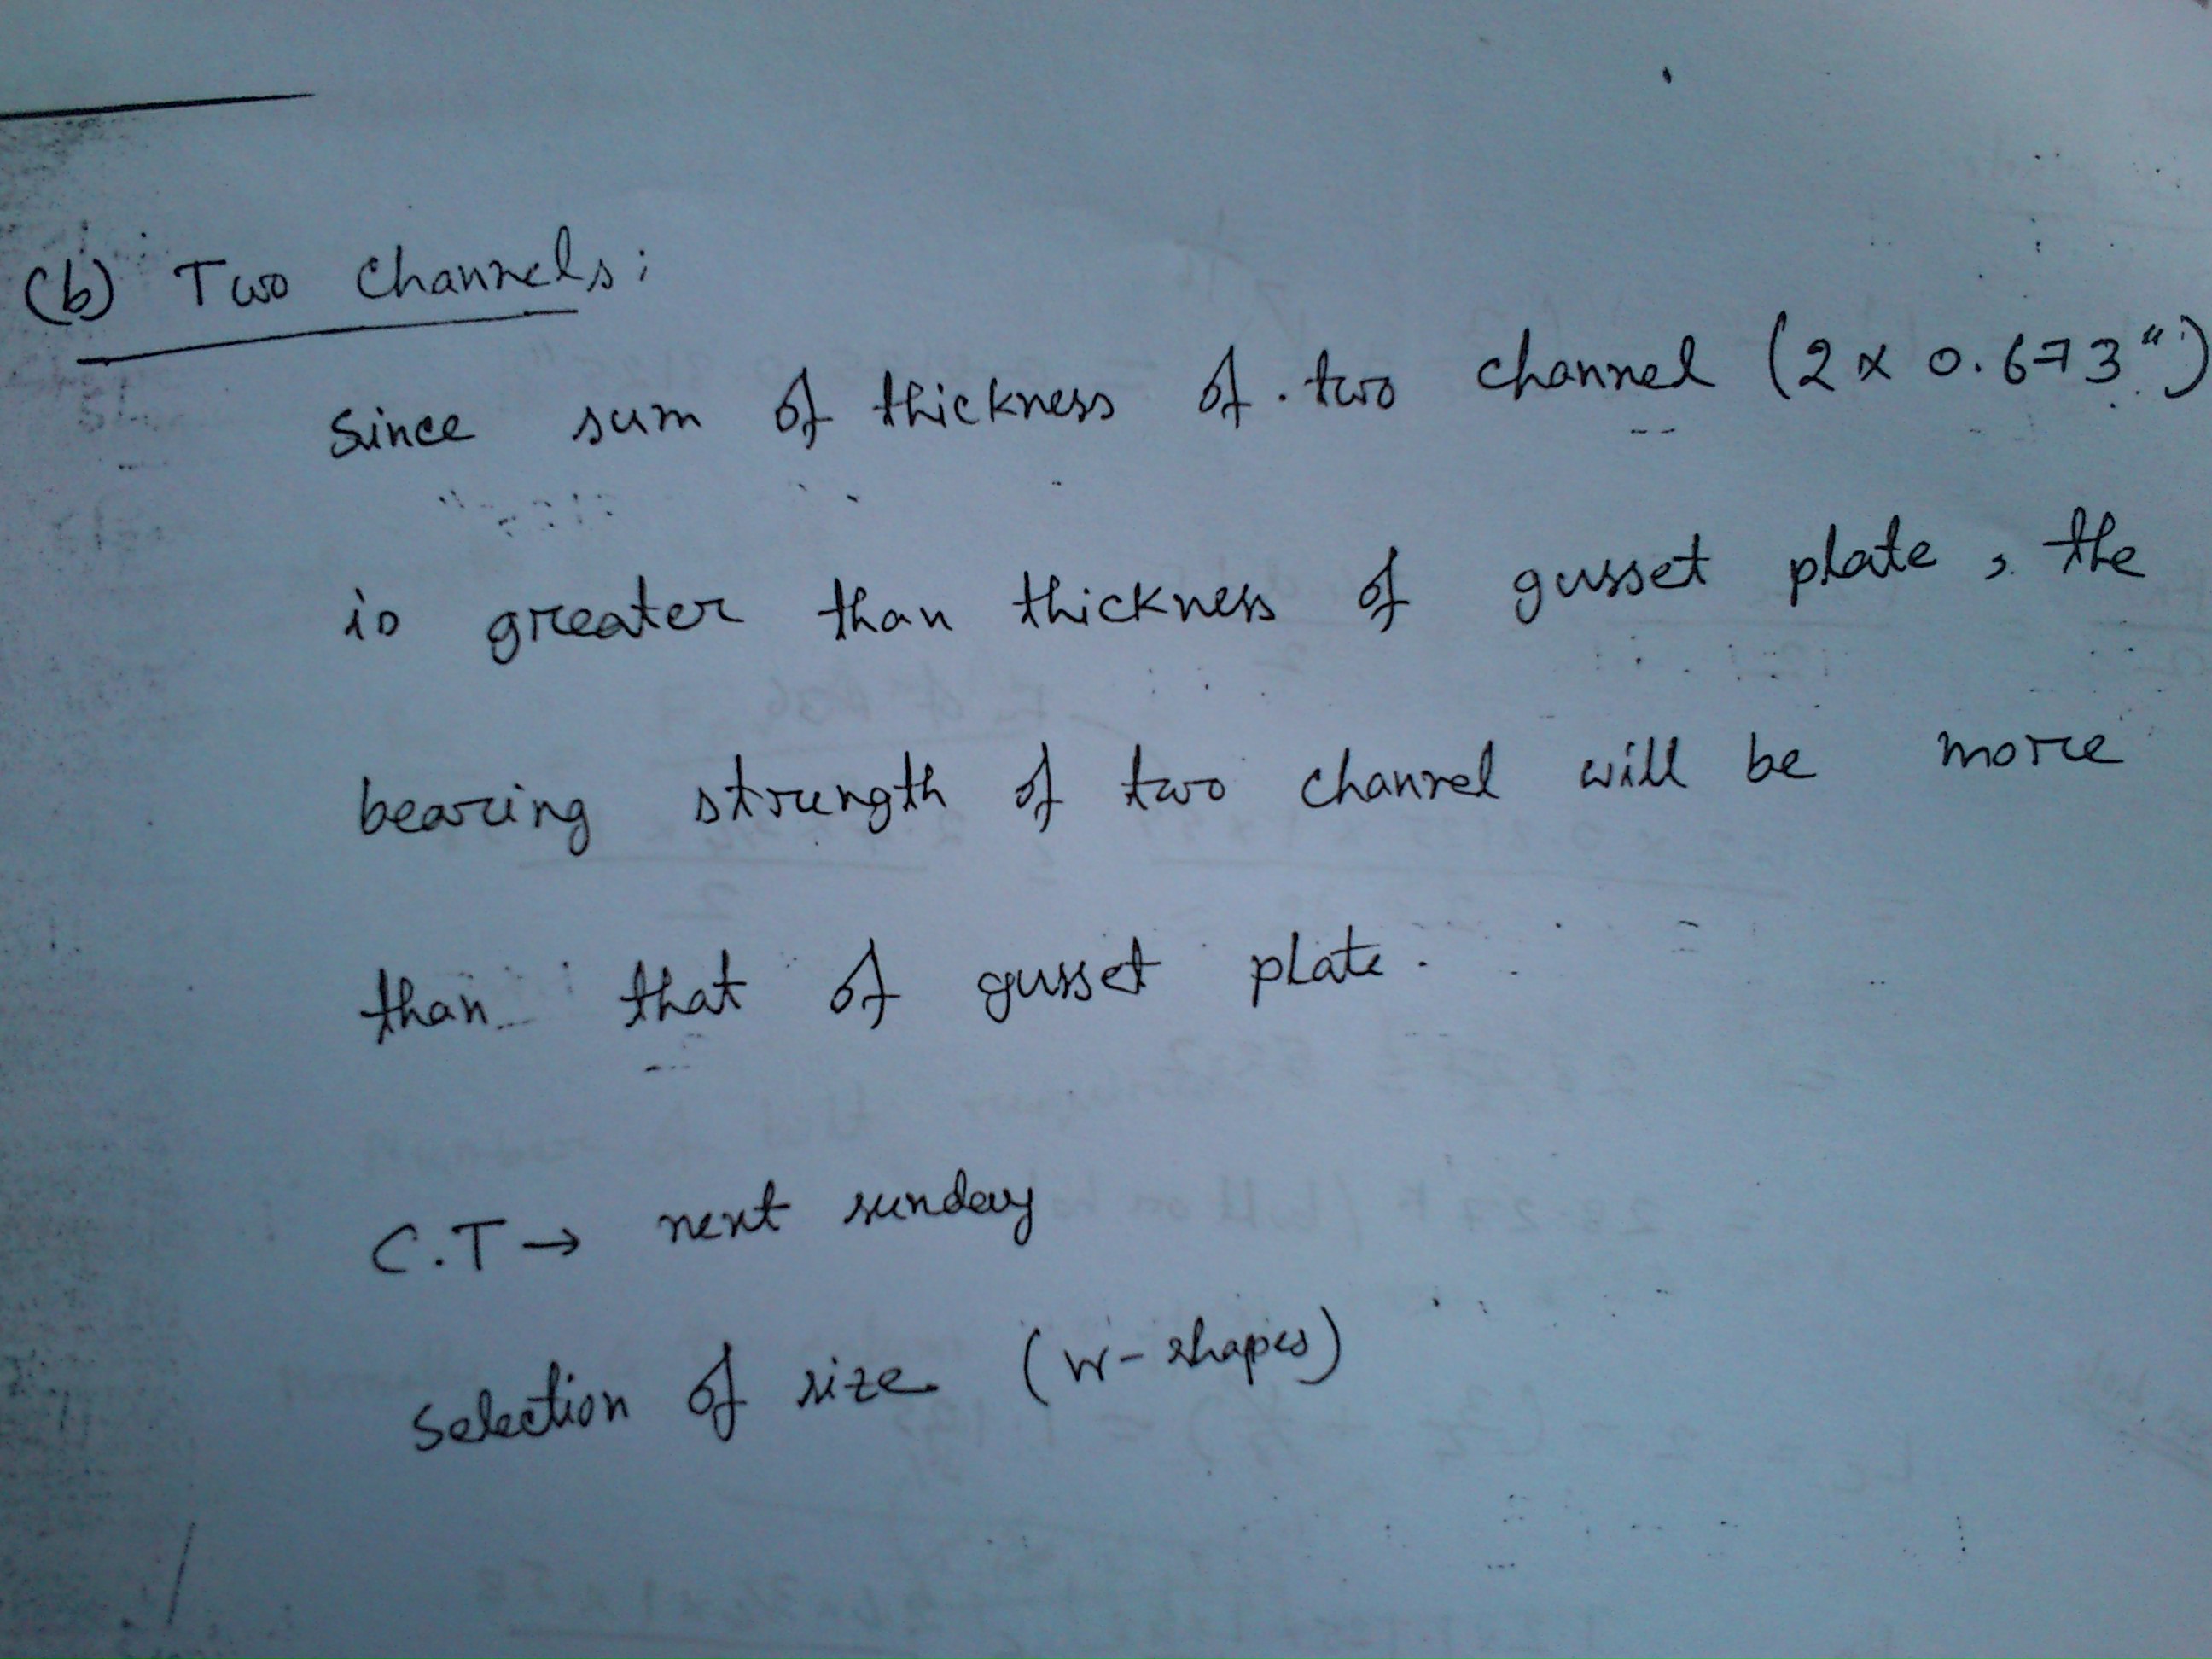 (b) Two Channels:
Since sum of thickness of two channel (2 x 0.673")
is greater than thickness of gusset plate, the
bearing strength of two channel will be more
than that of gusset plate.
C.T → next sunday
Selection of size (W-shapes)